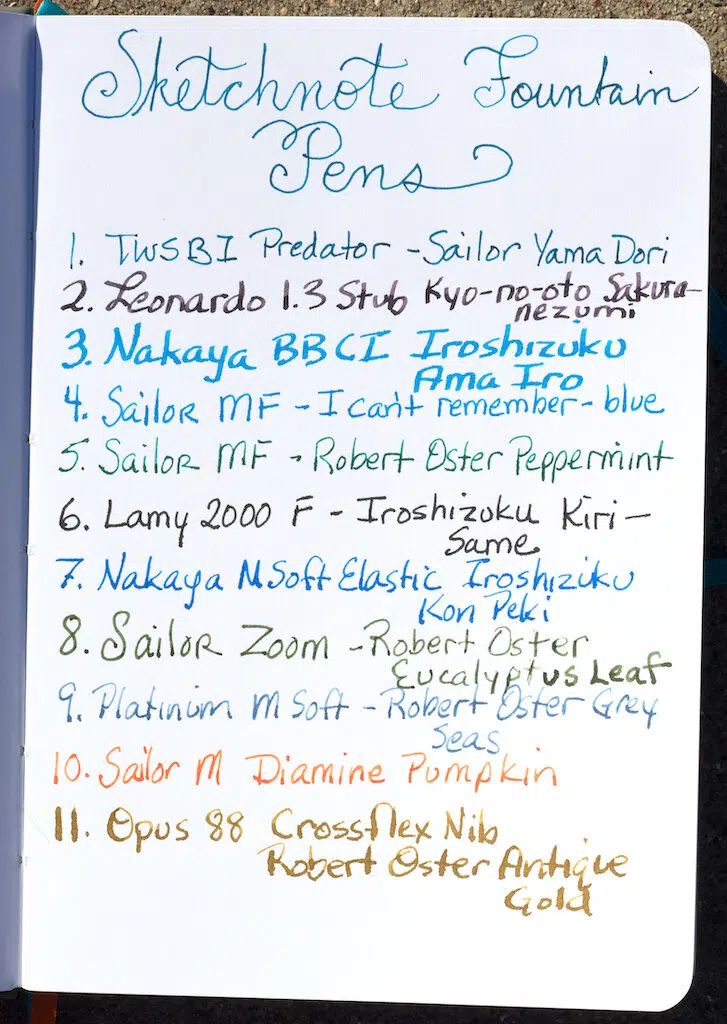 Sketchnote Fountain
Pens
1. TWSBI Predator - Sailor Yama Dori
2. Leonardo 1.3 Stub Kyo-no-oto Sakura-
nezumi
3. Nakaya BBCI Iroshizuku
Ama Iro
4. Sailor MF - I can't remember - blue
5. Sailor MF - Robert Oster Peppermint
6. Lamy 2000 F - Iroshizuku Kiri-
Same
7. Nakaya M Soft Elastic Iroshiziku
Kon Peki
8. Sailor Zoom - Robert Oster
Eucalyptus Leaf
9. Platinum M Soft - Robert Oster Grey
Seas
10. Sailor M Diamine Pumpkin
11. Opus 88 Crossflex Nib
Robert Oster Antique
Gold